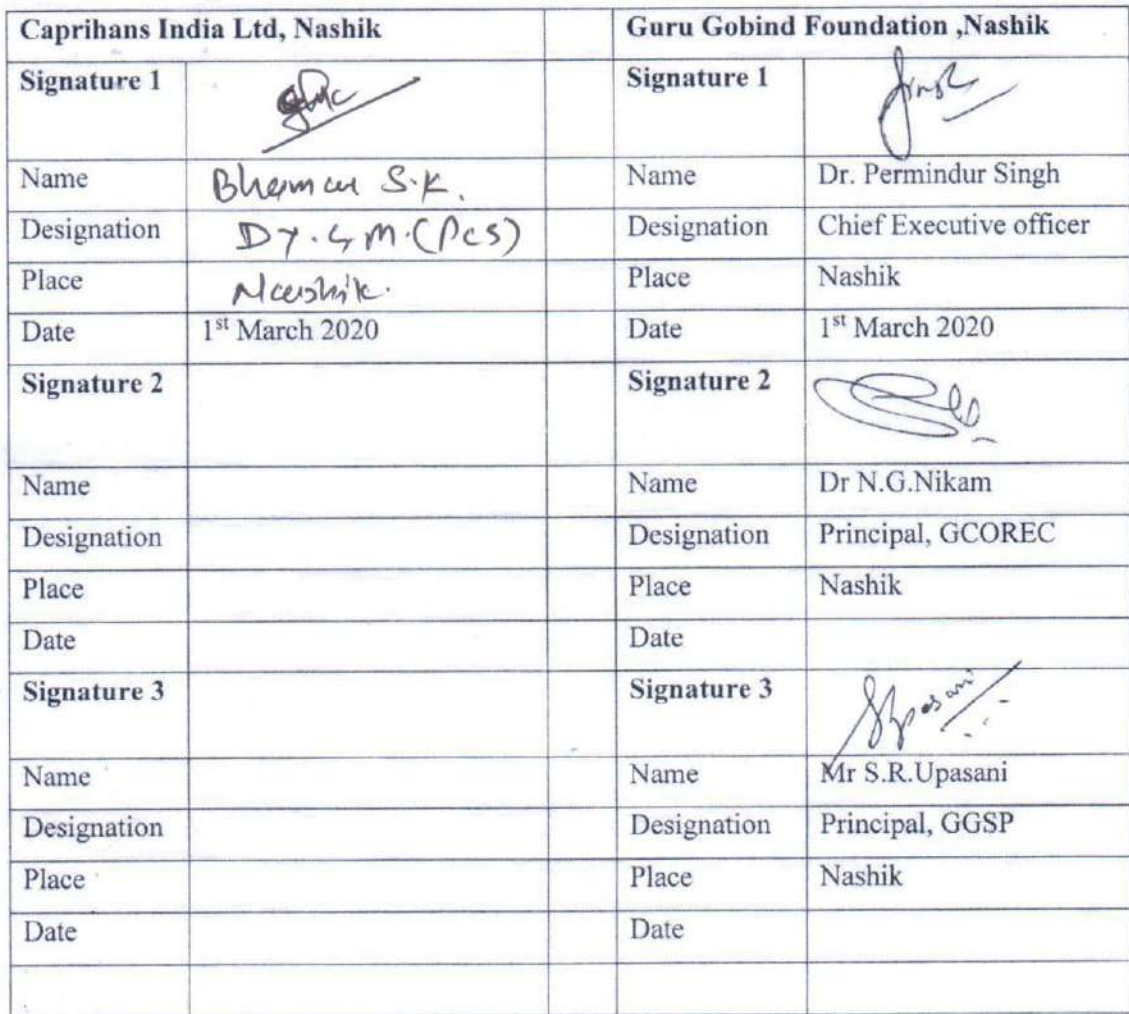 Caprihans India Ltd, Nashik Guru Gobind Foundation ,Nashik
Signature 1 Signature 1
Name S.K. Name Dr. Permindur Singh
Designation Dy.G.M.(PCS) Designation Chief Executive officer
Place Nashik. Place Nashik
Date 1st March 2020 Date 1st March 2020
Signature 2 Signature 2
Name Name Dr N.G.Nikam
Designation Designation Principal, GCOREC
Place Place Nashik
Date Date
Signature 3 Signature 3
Name Name Mr S.R.Upasani
Designation Designation Principal, GGSP
Place Place Nashik
Date Date